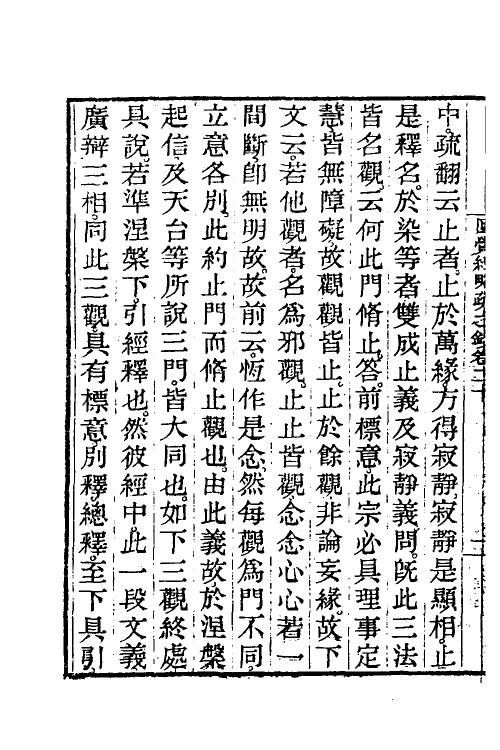 中。疏翻云止者。止於萬緣。方得寂靜。寂靜是顯相。止
是釋名。於染等者雙成止義及寂靜義。問。旣此三法
皆名觀。云何此門脩止。答。前標意。此宗必具理事定
慧皆無障礙。故觀觀皆止。止於餘觀非論妄緣。故下
文云。若他觀者。名爲邪觀。止止皆觀。念念心心若一
間斷。卽無明故。故前云。恆作是念。然每觀爲門不同。
立意各別。此約止門而脩止觀也。由此義故於涅槃
起信及天台等所說三門。皆大同也。如下三觀終處
具說。若準涅槃下。引經釋也。然彼經中。此一段文義
廣辯三相。同此三觀。具有標意。別釋。總釋。至下具引。
圓覺經略疏之鈔卷二十